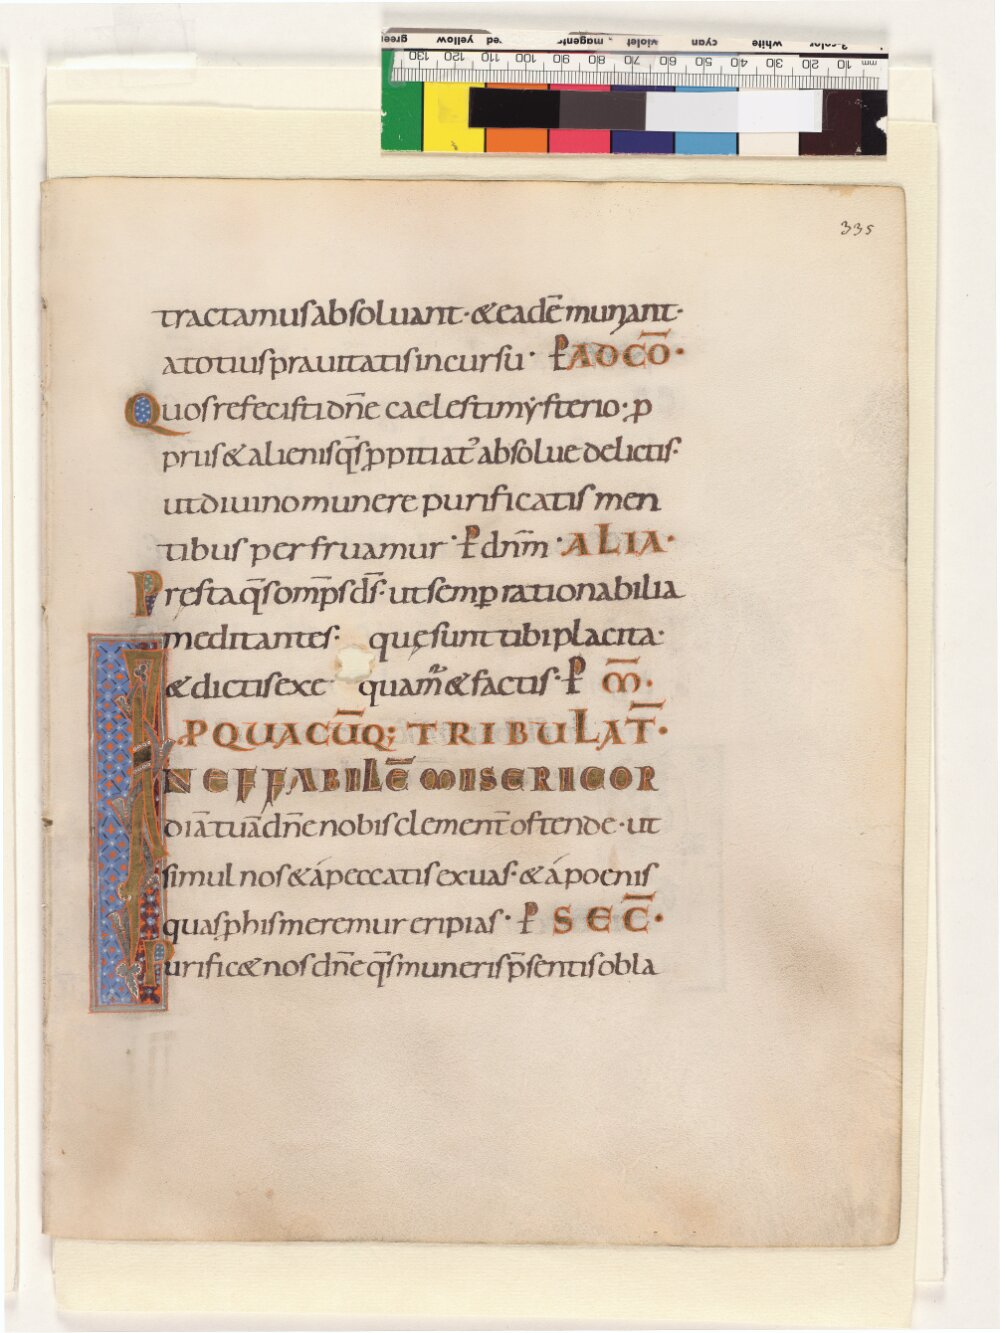 335
tractamus absoluant · & eadē muniant ·
a totius prauitatis incursu · P̄ AD CŌ ·
Quos refecisti dn̄e caelesti mẏsterio ; ꝑ
prius & alienis q̄s ꝓpitiat᾽ absolue delictis ·
ut diuino munere purificatis men
tibus perfruamur · P̄ dnm̄ · ALIA ·
Presta q̄s omp̄s d̄s · ut semꝑ rationabilia
meditantes · quę sunt tibi placita ·
& dictis exe quam̄ & factis · P̄ M̄ ·
P QUACŪQ; TRIBULAT̄ ·
INEFFABILĒ MISERICOR
diā tuā dn̄e nobis clement̄ ostende · ut
simul nos & á peccatis exuas · & á poenis
quas ꝓ his meremur eripias · P̄ SEC̄ ·
Purific& nos dn̄e q̄s muneris p̄sentis obla